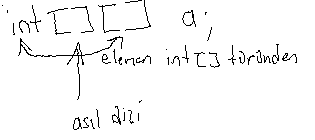 int [] [] a;
eleman int [] türünden
asıl dizi